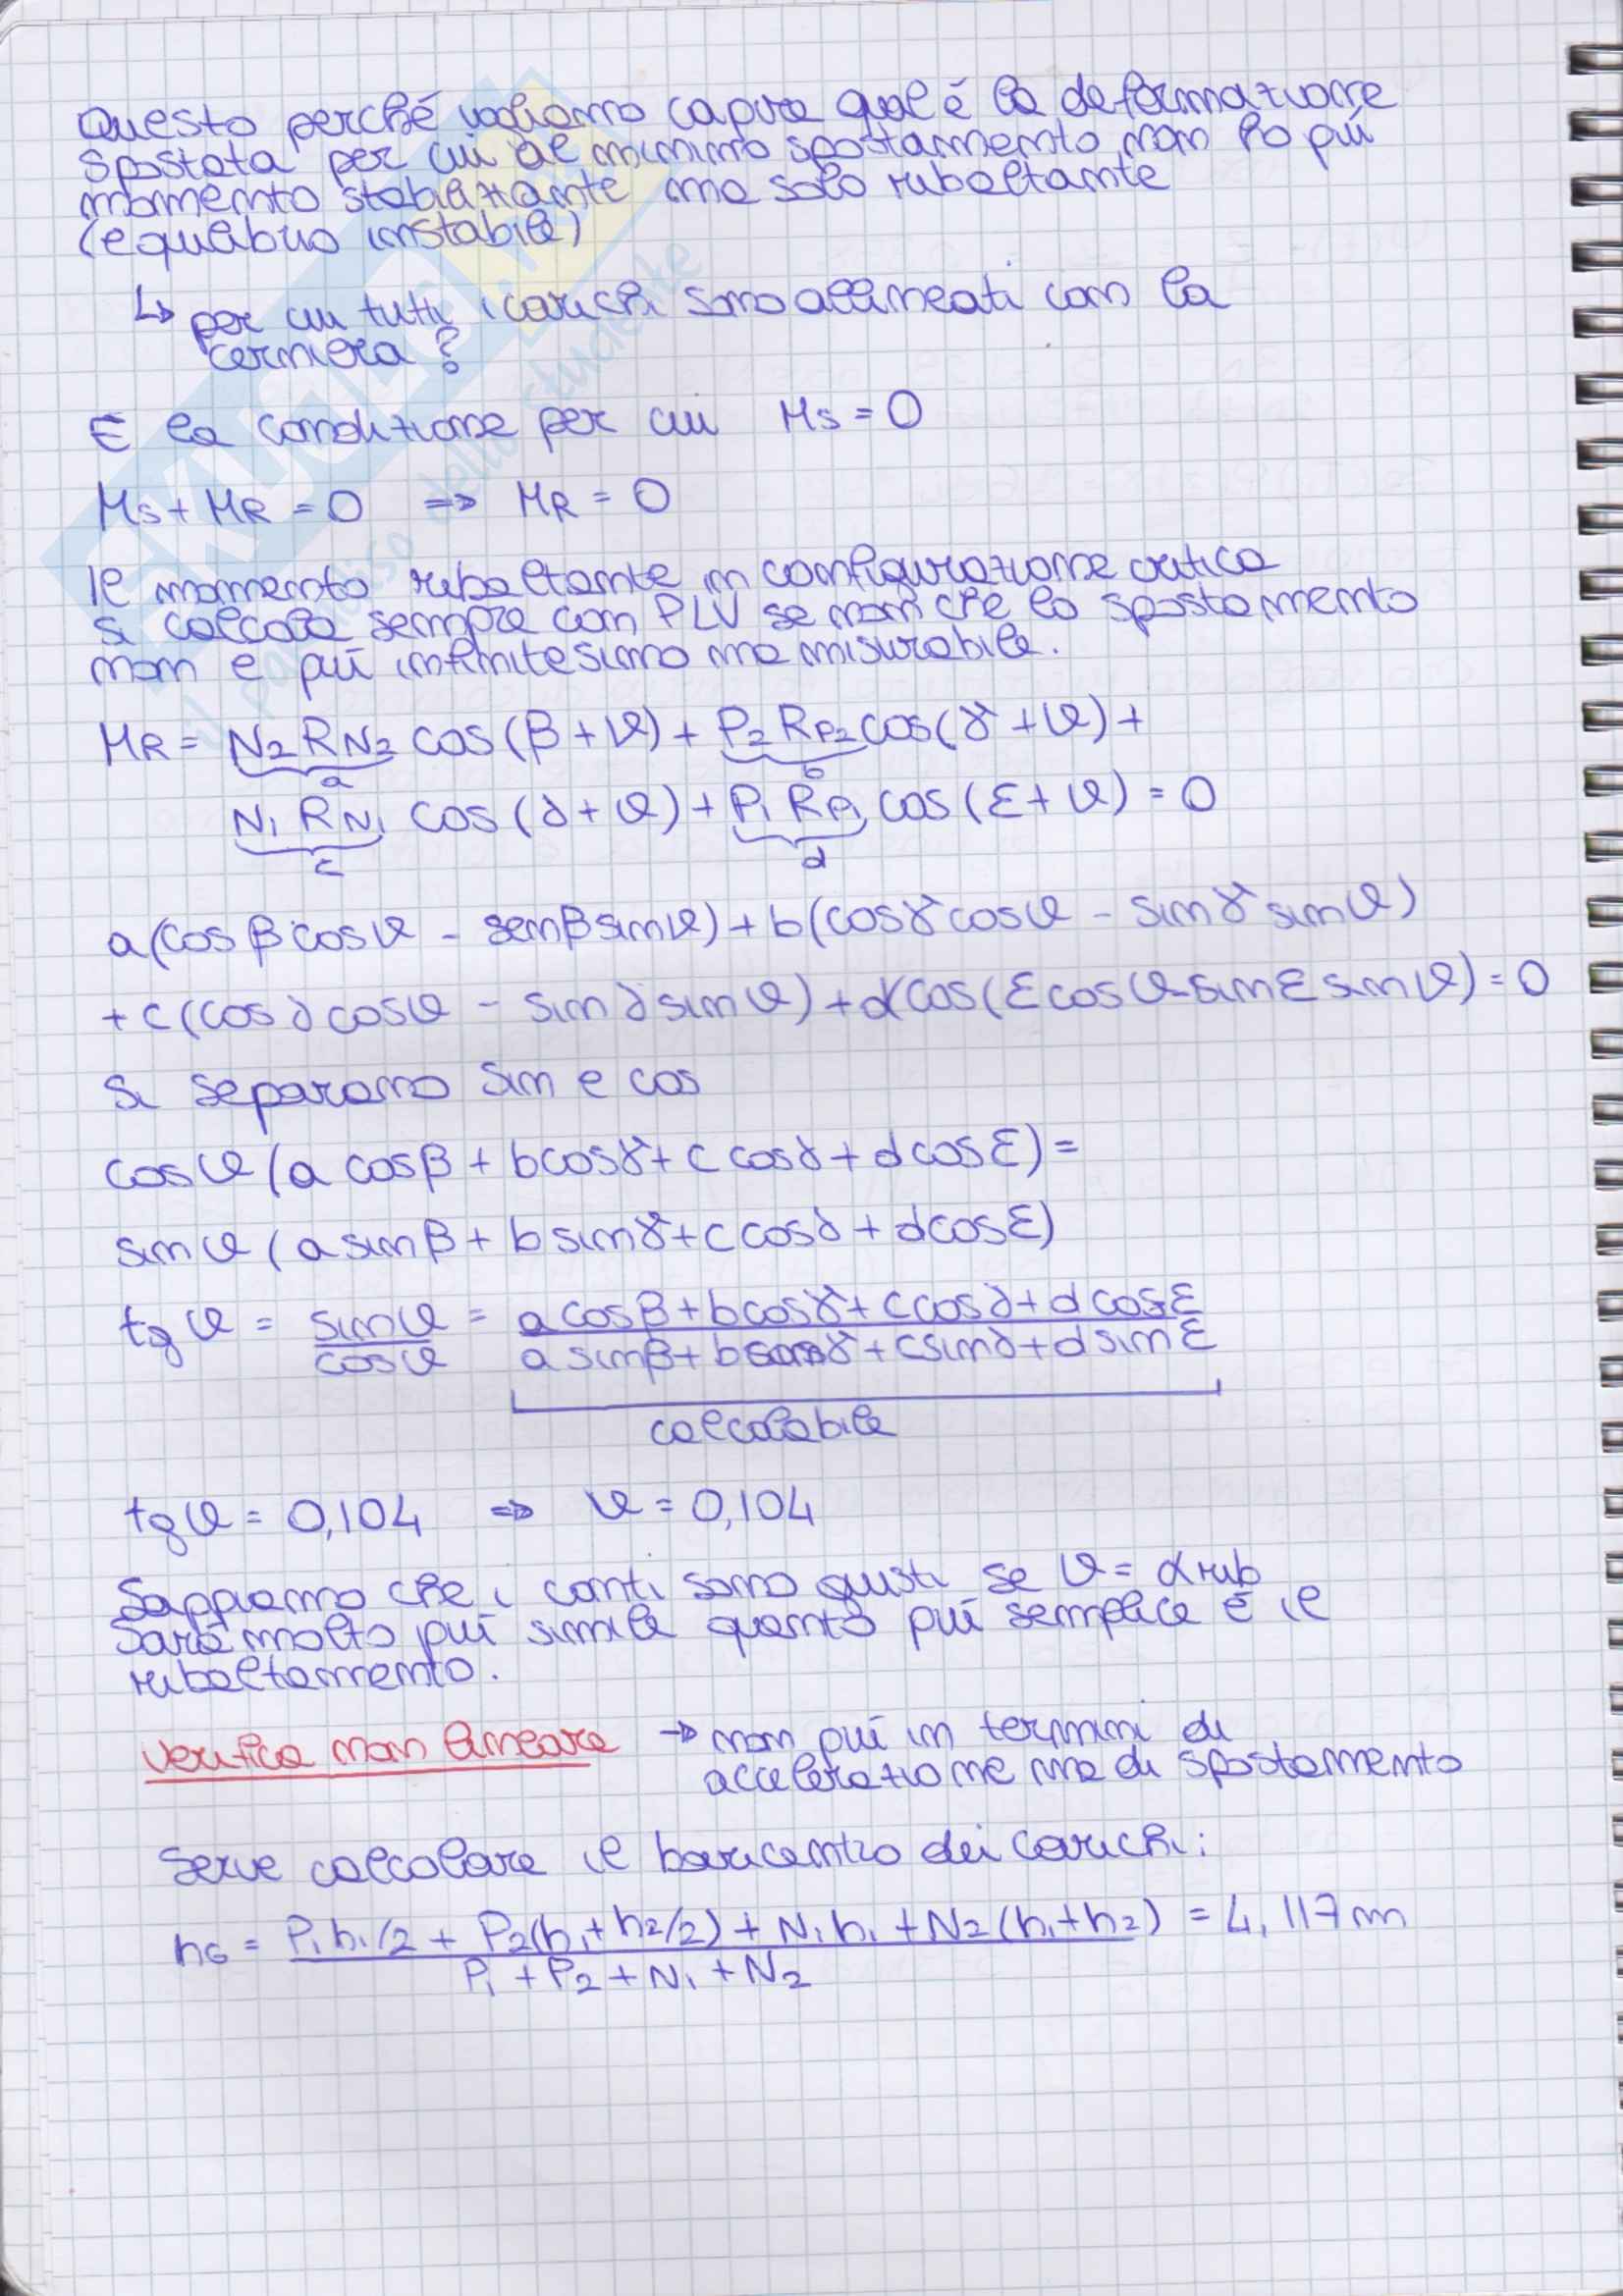 Questo perché vogliamo capire qual è la deformazione
spostata per cui al minimo spostamento non ho più
momento stabilizzante ma solo ribaltante
(equilibrio instabile)
↳ per cui tutti i carichi sono allineati con la
cerniera?
È la condizione per cui Ms = 0
Ms + MR = 0 => MR = 0
Il momento ribaltante in configurazione critica
si calcola sempre con PLV se non che lo spostamento
non è più infinitesimo ma misurabile.
MR = N2 RN2 cos(β + ϑ) + P2 RP2 cos(γ + ϑ) +
a b
N1 RN1 cos(δ + ϑ) + P1 RP1 cos(ε + ϑ) = 0
c d
a(cosβ cosϑ - senβ sinϑ) + b(cosγ cosϑ - sinγ sinϑ)
+ c(cosδ cosϑ - sinδ sinϑ) + d cos(ε cosϑ - sinε sinϑ) = 0
Si separano sin e cos
cosϑ (a cosβ + b cosγ + c cosδ + d cosε) =
sinϑ (a sinβ + b sinγ + c cosδ + d cosε)
tgϑ = sinϑ/cosϑ = a cosβ + b cosγ + c cosδ + d cosε
a sinβ + b sinγ + c sinδ + d sinε
calcolabile
tgϑ = 0,104 => ϑ = 0,104
Sappiamo che i conti sono giusti se ϑ = αrib
Sarà molto più simile quanto più semplice è il
ribaltamento.
Verifica non lineare → non più in termini di
accelerazione ma di spostamento
Serve calcolare il baricentro dei carichi:
hG = P1 h1/2 + P2(h1 + h2/2) + N1 h1 + N2 (h1 + h2) = 4,117 m
P1 + P2 + N1 + N2